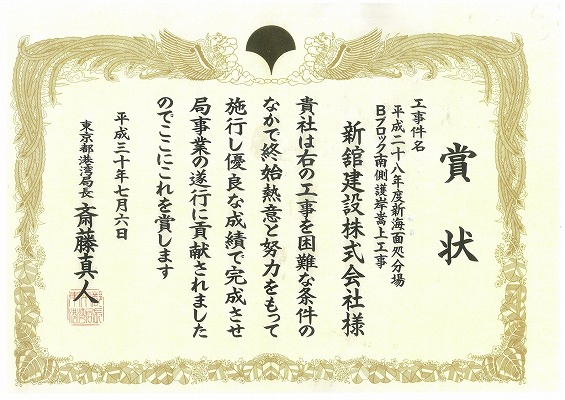 賞状
工事件名
平成二十八年度新海面処分場
Bブロック南側護岸嵩上工事
新舘建設株式会社様
貴社は右の工事を困難な条件の
なかで終始熱意と努力をもって
施行し優良な成績で完成させ
局事業の遂行に貢献されました
のでここにこれを賞します
平成三十年七月六日
東京都港湾局長 斎藤真人